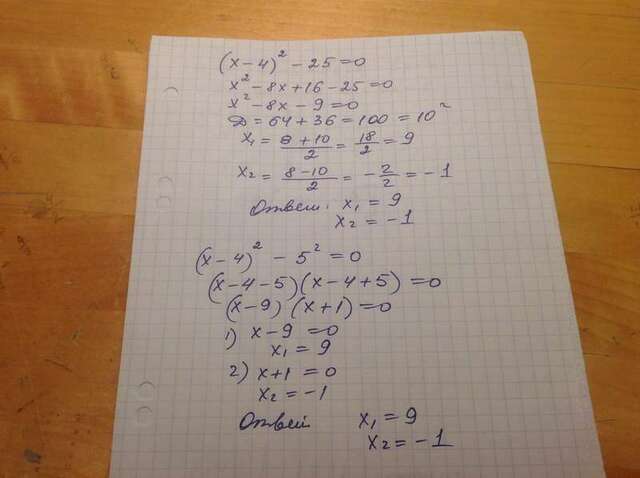 (x-4)² - 25 = 0
x² - 8x + 16 - 25 = 0
x² - 8x - 9 = 0
D = 64 + 36 = 100 = 10²
x₁ = (8 + 10)/2 = 18/2 = 9
x₂ = (8 - 10)/2 = -2/2 = -1
Ответ: x₁ = 9
x₂ = -1
(x-4)² - 5² = 0
(x-4-5)(x-4+5) = 0
(x-9)(x+1) = 0
1) x-9 = 0
x₁ = 9
2) x+1 = 0
x₂ = -1
Ответ x₁ = 9
x₂ = -1